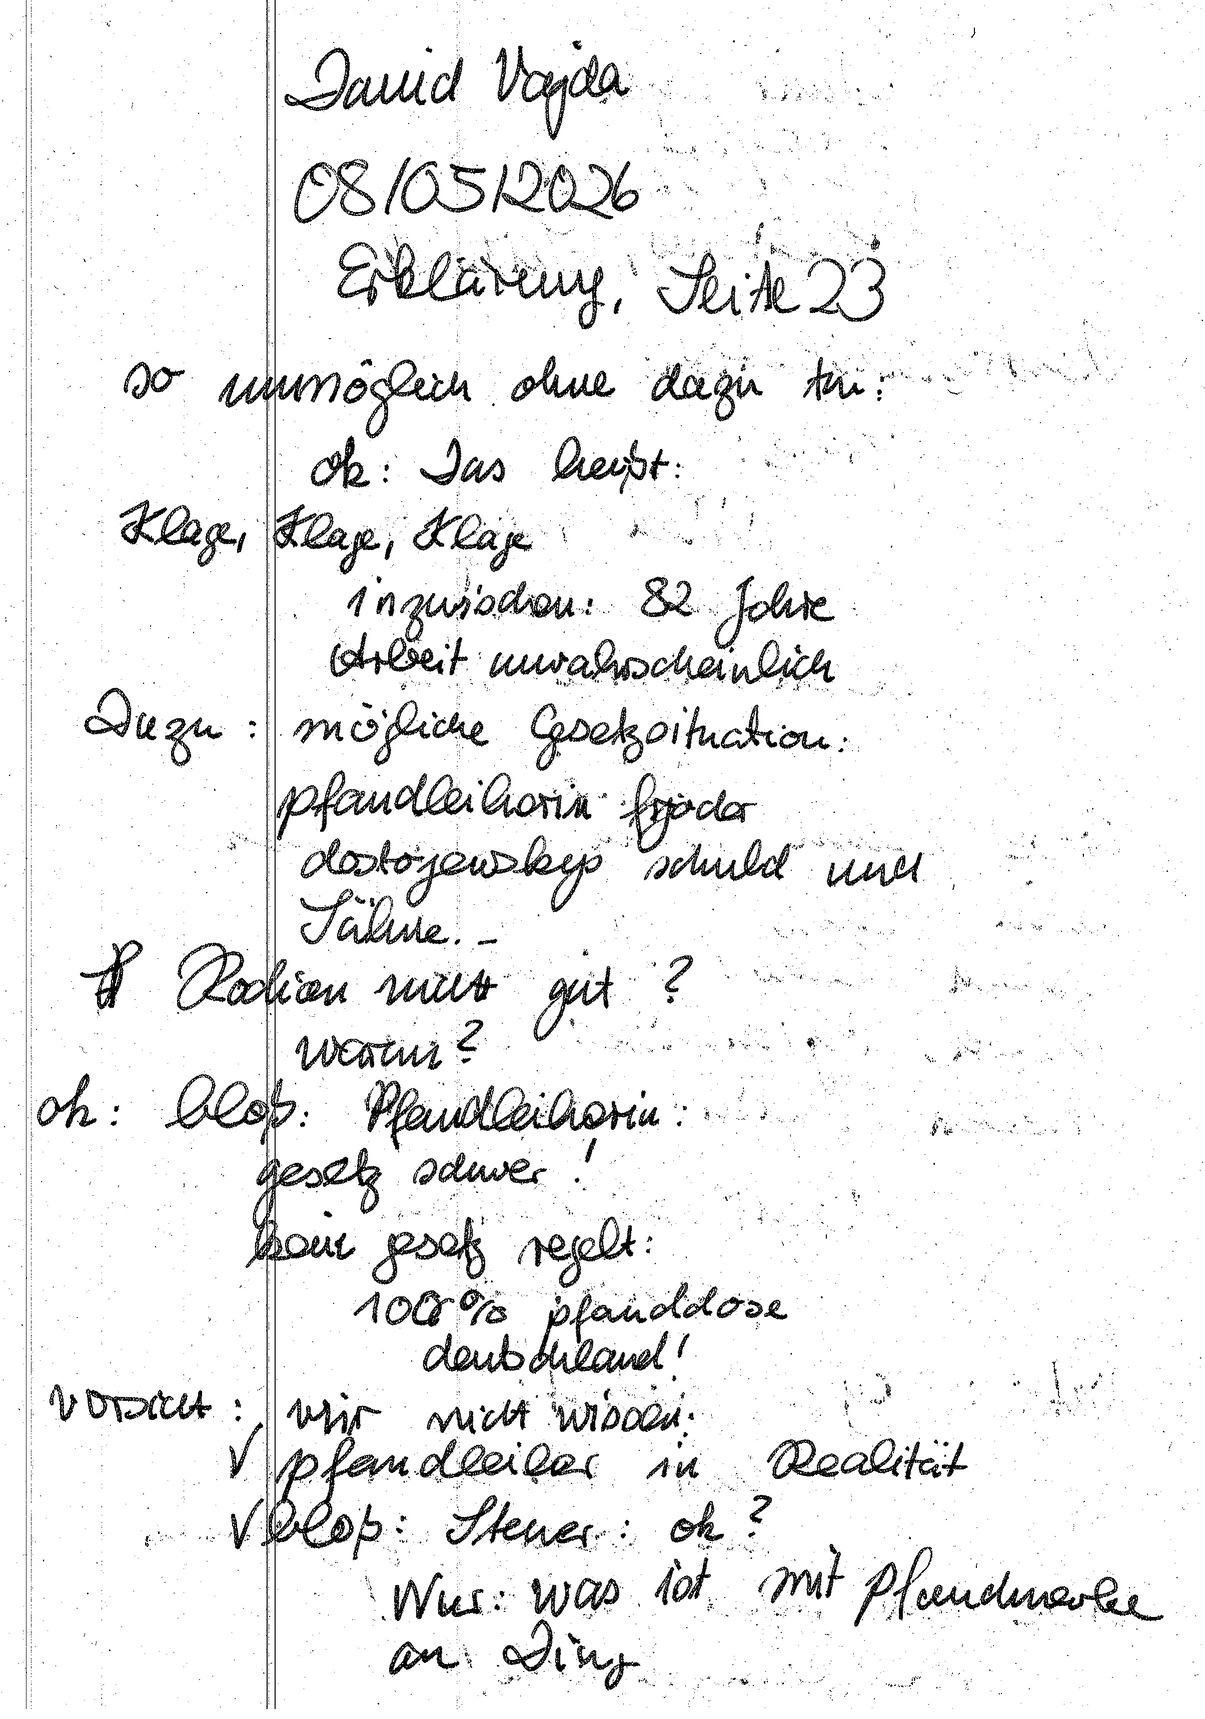 David Vajda
08/05/2026
Erklärung, Seite 23
so unmöglich ohne dazu tun:
ok: Das heißt:
Klage, Klage, Klage
inzwischen: 82 Jahre
Arbeit unwahrscheinlich
Dazu: mögliche Gesetzsituation:
pfandleiherin
dostojewskys schuld und
Sühne. -
Rodion nicht gut ?
warum?
ok: bloß: Pfandleiherin:
gesetz schwer!
kein gesetz regelt:
100% pfanddose
deutschland!
vorsicht: wir nicht wissen:
√ pfandleiher in Realität
√ bloß: Steuer: ok?
Nur: was ist mit Pfandmarke
an Ding